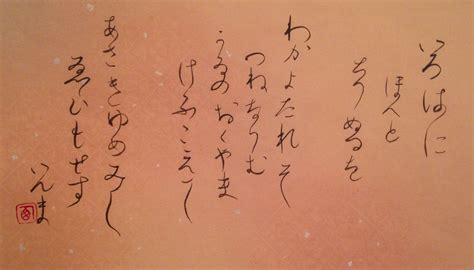 いろはに
ほへと
ちりぬるを
わかよたれそ
つねならむ
うゐのおくやま
けふこえて
あさきゆめみし
ゑひもせす